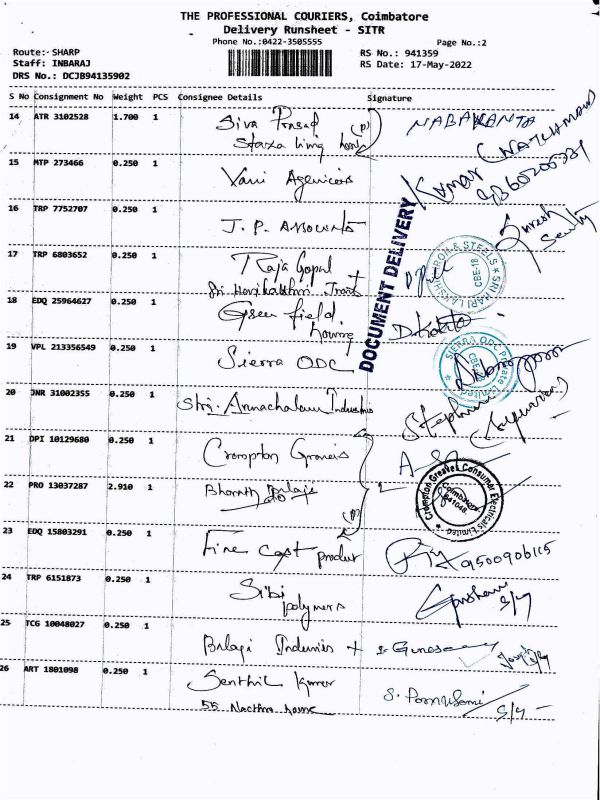 THE PROFESSIONAL COURIERS, Coimbatore
Delivery Runsheet - SITR
Phone No.:0422-3505555 Page No.:2
Route:- SHARP RS No.: 941359
Staff: INBARAJ RS Date: 17-May-2022
DRS No.: DCJB94135902
S No Consignment No Weight PCS Consignee Details Signature
14 ATR 3102528 1.700 1 Siva Prasad NABAKANTA
15 MTP 273466 0.250 1 Vani Agencies Kumar
16 TRP 7752707 0.250 1 J. P. Suresh
17 TRP 6803652 0.250 1 Raja Gopal +
Sri Trust
DOCUMENT DELIVERY
SRI HARI LAKSHMI IRON & STEELS
CBE-18
18 EDQ 25964627 0.250 1 Green field
19 VPL 213356549 0.250 1 Sierra ODC
SIERRA ODC Private Limited
20 JNR 31002355 0.250 1 Shri. Annachalam Industries Stephen
21 DPI 10129680 0.250 1 Crompton Greaves
Crompton Greaves Consumer Electricals Limited
Coimbatore
641048
22 PRO 13037287 2.910 1 Bharath Balaji
23 EDQ 15803291 0.250 1 Fine Cast product 9500906115
24 TRP 6151873 0.250 1 Sibi
polymers
25 TCG 10048027 0.250 1 Balaji + Joseph
26 ART 1801098 0.250 1 Senthil Kumar S.
55